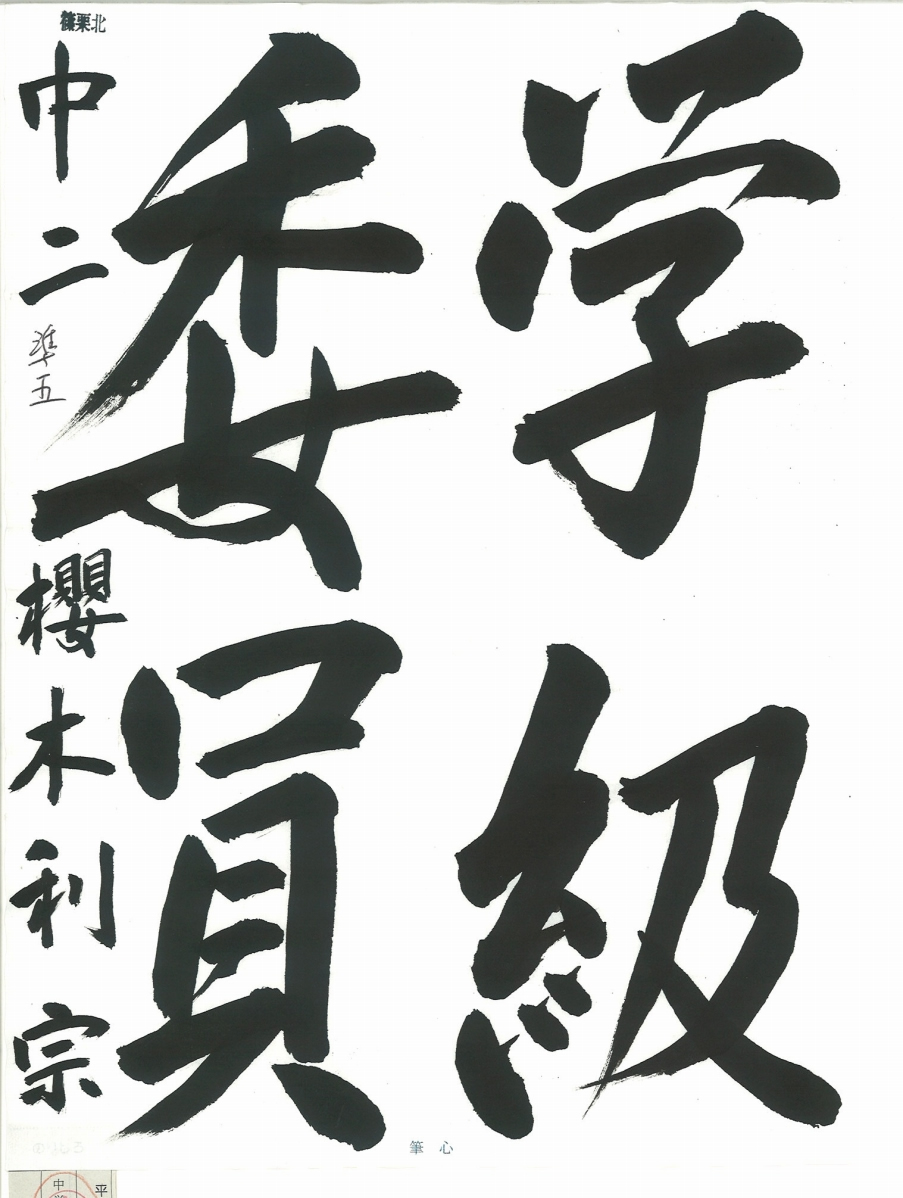 学級
委員
篠栗北
中二 準五 櫻木利宗
筆心
平
中